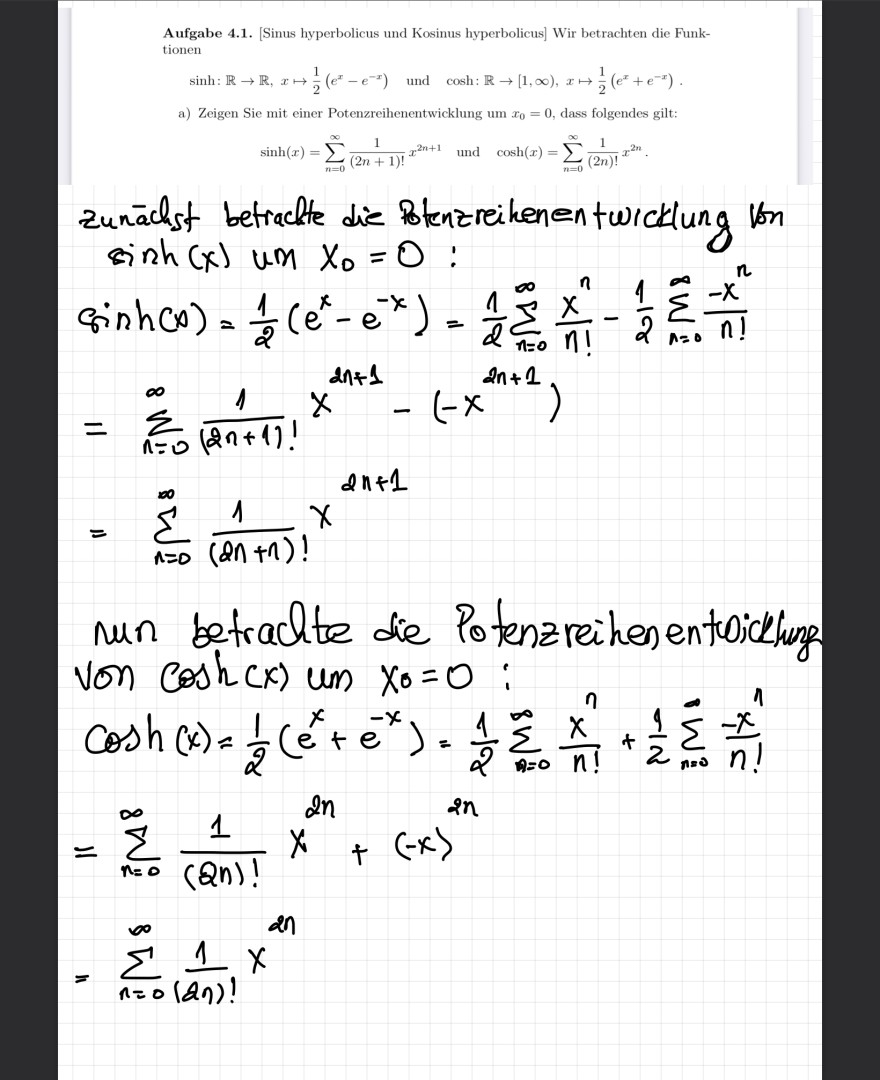 Aufgabe 4.1. [Sinus hyperbolicus und Kosinus hyperbolicus] Wir betrachten die Funk-
tionen
sinh: ℝ → ℝ, x ↦ 1/2 (e^x − e^−x) und cosh: ℝ → [1, ∞), x ↦ 1/2 (e^x + e^−x) .
a) Zeigen Sie mit einer Potenzreihenentwicklung um x₀ = 0, dass folgendes gilt:
sinh(x) = ∑_{n=0}^{∞} 1/(2n + 1)! x^{2n+1} und cosh(x) = ∑_{n=0}^{∞} 1/(2n)! x^{2n} .
zunächst betrachte die Potenzreihenentwicklung von
sinh(x) um x₀ = 0 :
sinh(x) = 1/2 (e^x − e^−x) = 1/2 ∑_{n=0}^{∞} x^n/n! − 1/2 ∑_{n=0}^{∞} −x^n/n!
= ∑_{n=0}^{∞} 1/(2n+1)! x^{2n+1} − (−x^{2n+1})
= ∑_{n=0}^{∞} 1/(2n+1)! x^{2n+1}
nun betrachte die Potenzreihenentwicklung
von cosh(x) um x₀ = 0 :
cosh(x) = 1/2 (e^x + e^−x) = 1/2 ∑_{n=0}^{∞} x^n/n! + 1/2 ∑_{n=0}^{∞} −x^n/n!
= ∑_{n=0}^{∞} 1/(2n)! x^{2n} + (−x)^{2n}
= ∑_{n=0}^{∞} 1/(2n)! x^{2n}